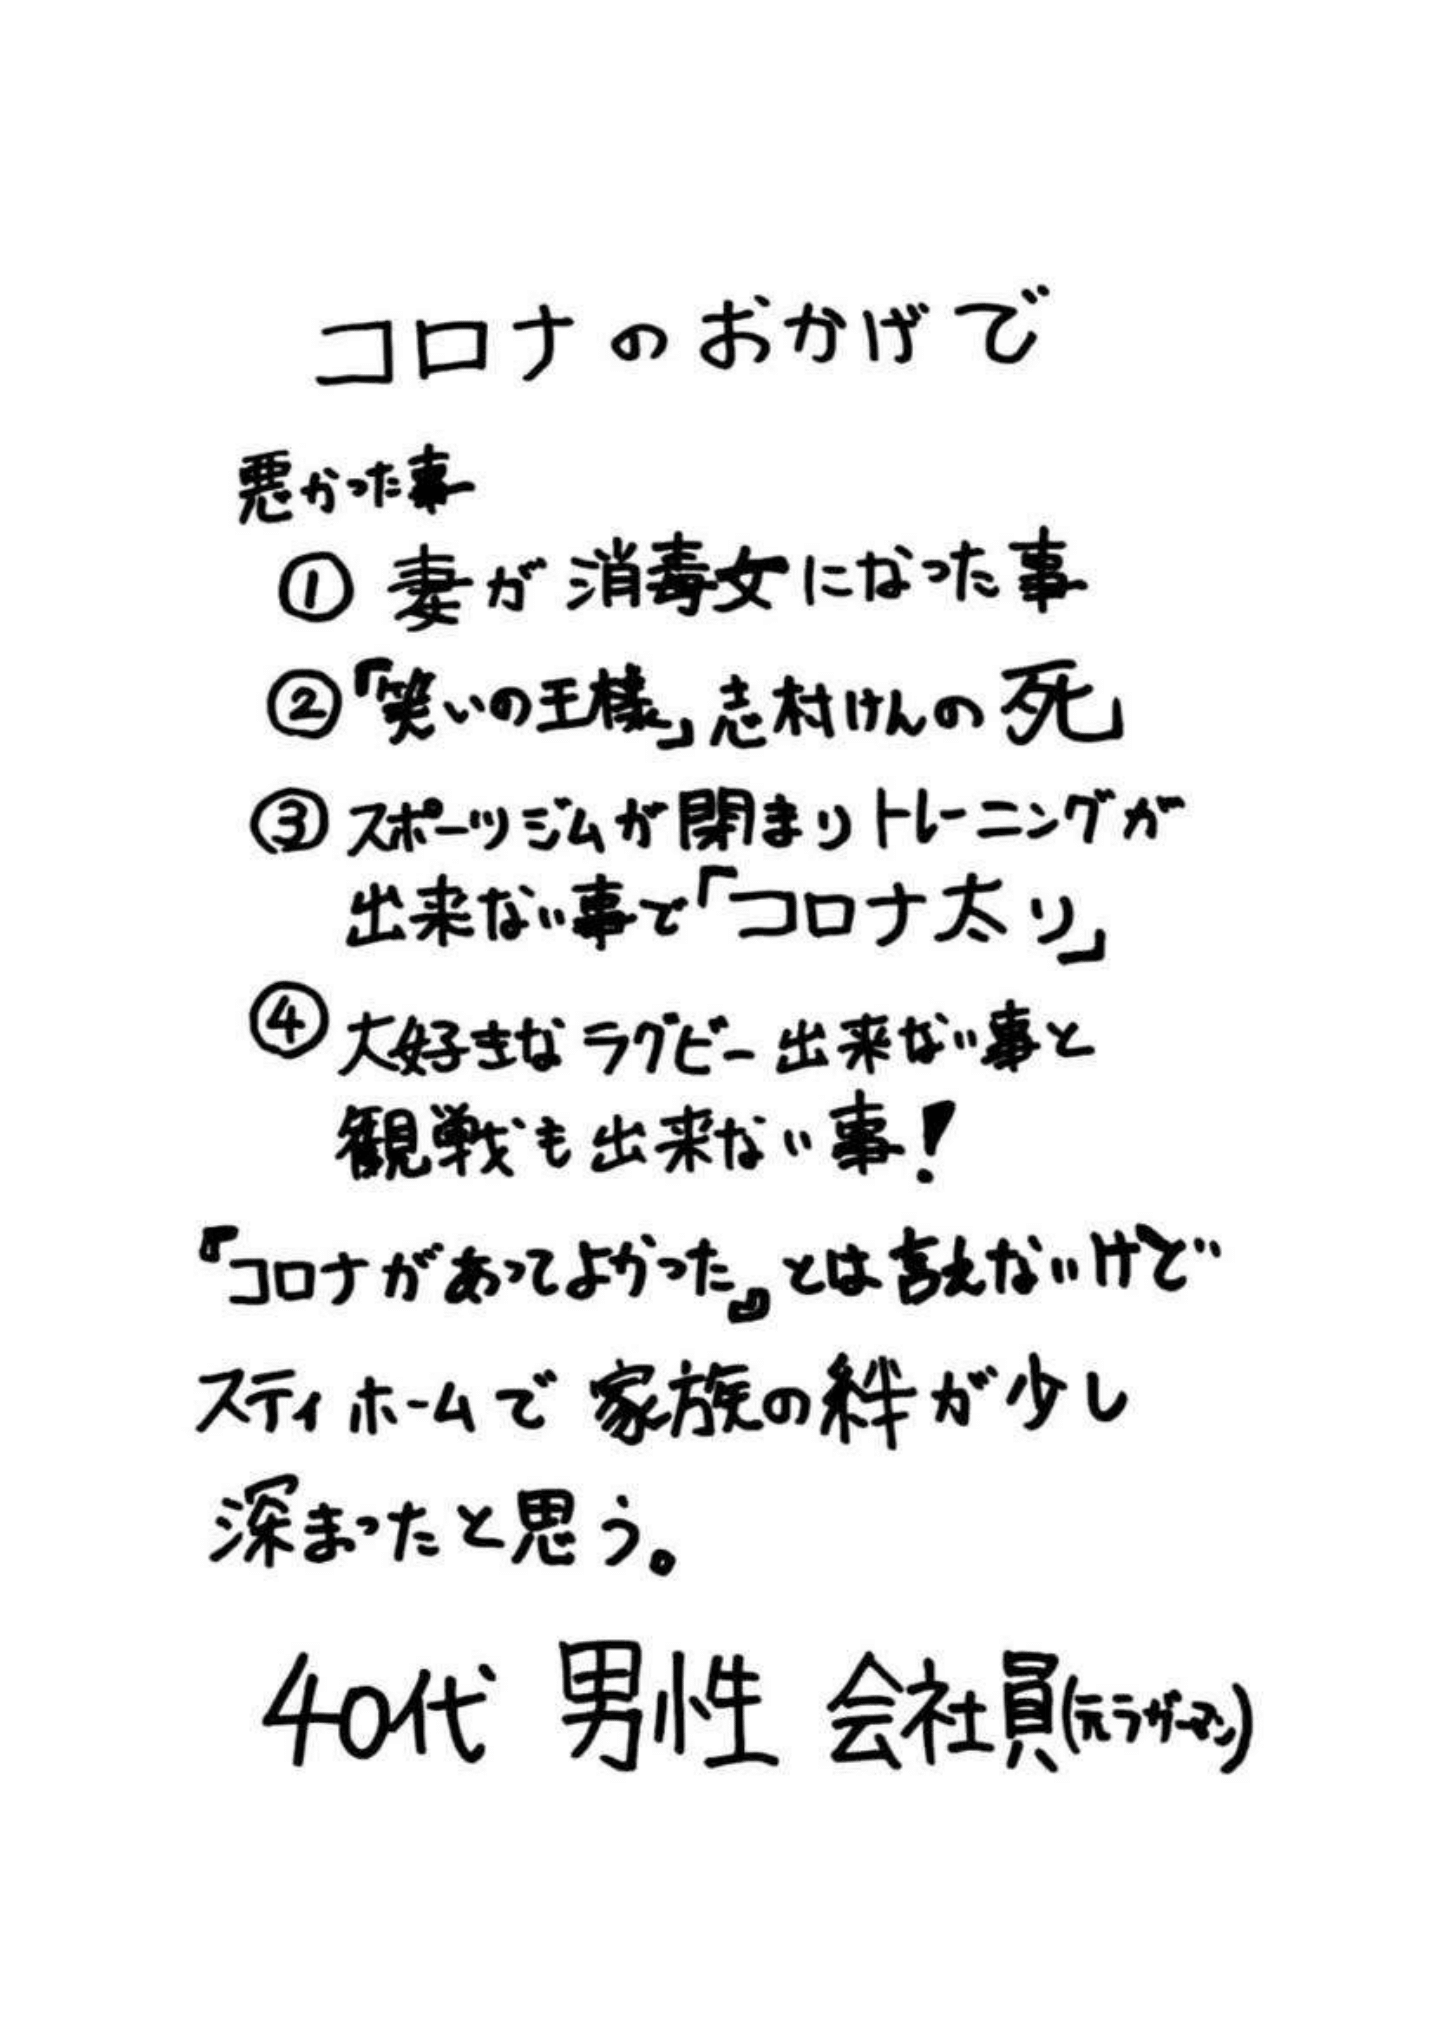 コロナのおかげで
悪かった事
① 妻が消毒女になった事
②「笑いの王様」志村けんの死」
③ スポーツジムが閉まりトレーニングが
出来ない事で「コロナ太り」
④ 大好きなラグビー出来ない事と
観戦も出来ない事!
『コロナがあってよかった』とは言えないけど
スティホームで家族の絆が少し
深まったと思う。
40代 男性 会社員(元ラガーマン)